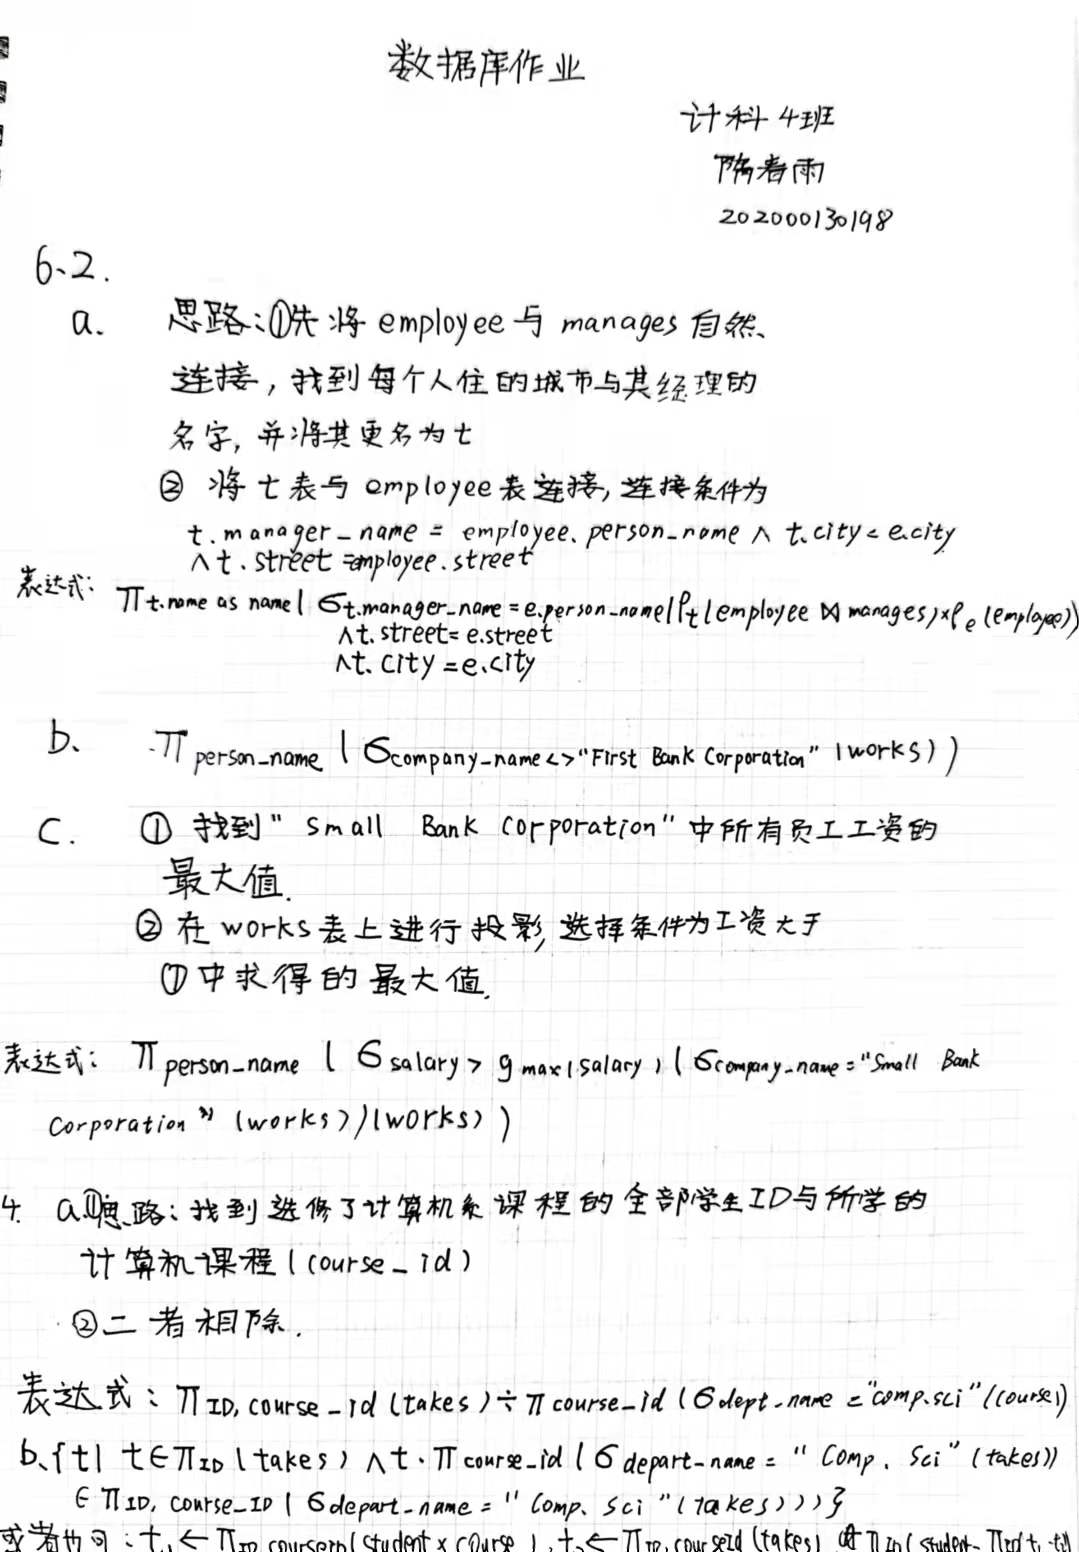 数据库作业
计科 4班
隋春雨
202000130198
6、2.
a. 思路:①先将 employee 与 manages 自然
连接，找到每个人住的城市与其经理的
名字，并将其更名为t
② 将 t 表与 employee 表连接，连接条件为
t.manager_name = employee.person_name ∧ t.city = e.city
∧ t.street = employee.street
表达式: π t.name as name ( σ t.manager_name = e.person_name ( ρt (employee ⋈ manages) × ρe (employee))
∧t.street = e.street
∧t.city = e.city
b、 π person_name ( σ company_name <> "First Bank Corporation" (works) )
C. ① 找到 "Small Bank Corporation" 中所有员工工资的
最大值.
② 在 works 表上进行投影，选择条件为工资大于
①中求得的最大值.
表达式: π person_name ( σ salary > g max(salary) ( σ company_name = "Small Bank
Corporation" (works))(works) )
4. a.①思路: 找到选修了计算机系课程的全部学生ID与所学的
计算机课程 (course_id)
②二者相除.
表达式: π ID, course_id (takes) ÷ π course_id ( σ dept_name = "comp.sci" (course))
b、{t| t ∈ π ID (takes) ∧ t · π course_id ( σ depart_name = "Comp. Sci" (takes))
∈ π ID, course_ID ( σ depart_name = "Comp. Sci" (takes)))}
或者也可: t₁ ← π ID, courseID (student × course), t₂ ← π ID, courseId (takes) π ID (student - π ID (t₁-t₂)